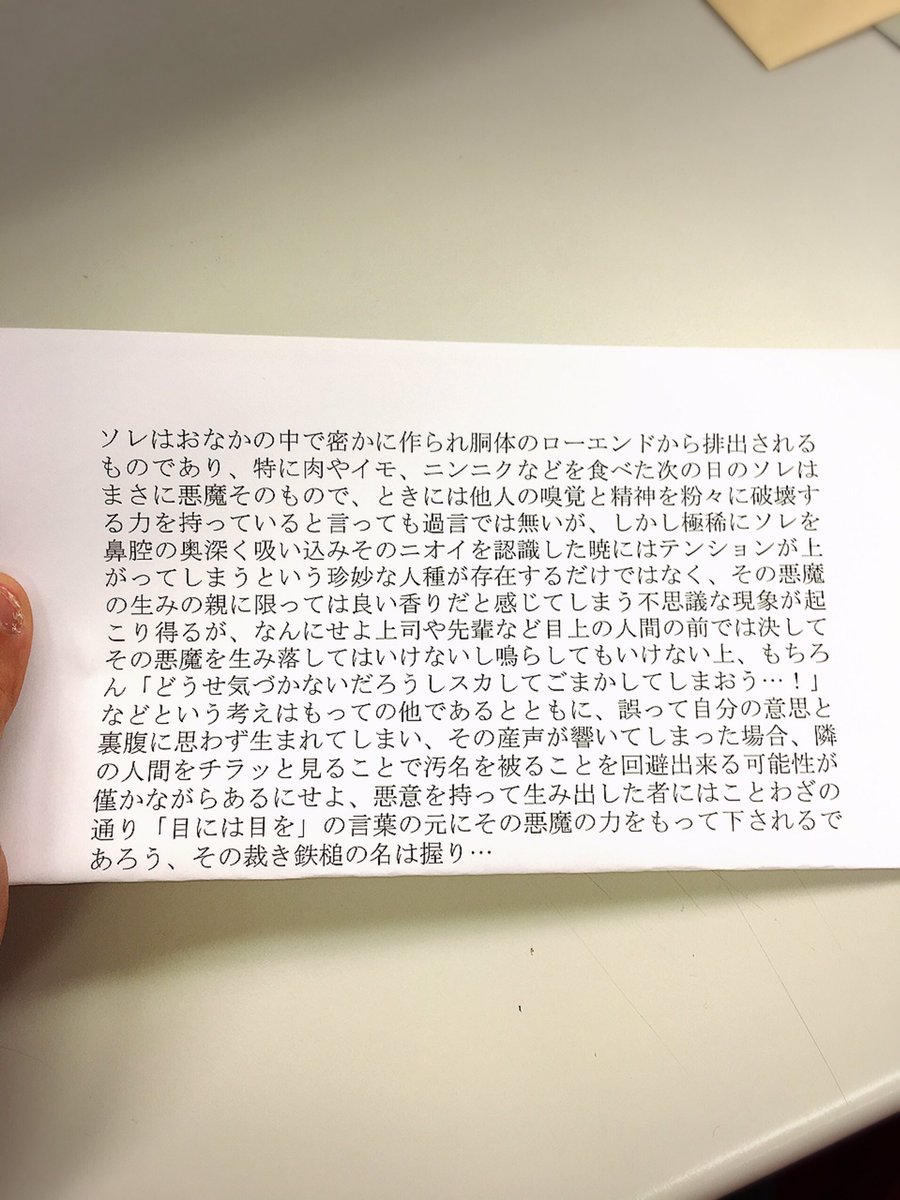 ソレはおなかの中で密かに作られ胴体のローエンドから排出される
ものであり、特に肉やイモ、ニンニクなどを食べた次の日のソレは
まさに悪魔そのもので、ときには他人の嗅覚と精神を粉々に破壊す
る力を持っていると言っても過言では無いが、しかし極稀にソレを
鼻腔の奥深く吸い込みそのニオイを認識した暁にはテンションが上
がってしまうという珍妙な人種が存在するだけではなく、その悪魔
の生みの親に限っては良い香りだと感じてしまう不思議な現象が起
こり得るが、なんにせよ上司や先輩など目上の人間の前では決して
その悪魔を生み落してはいけないし鳴らしてもいけない上、もちろ
ん「どうせ気づかないだろうしスカしてごまかしてしまおう…！」
などという考えはもっての他であるとともに、誤って自分の意思と
裏腹に思わず生まれてしまい、その産声が響いてしまった場合、隣
の人間をチラッと見ることで汚名を被ることを回避出来る可能性が
僅かながらあるにせよ、悪意を持って生み出した者にはことわざの
通り「目には目を」の言葉の元にその悪魔の力をもって下されるで
あろう、その裁き鉄槌の名は握り…